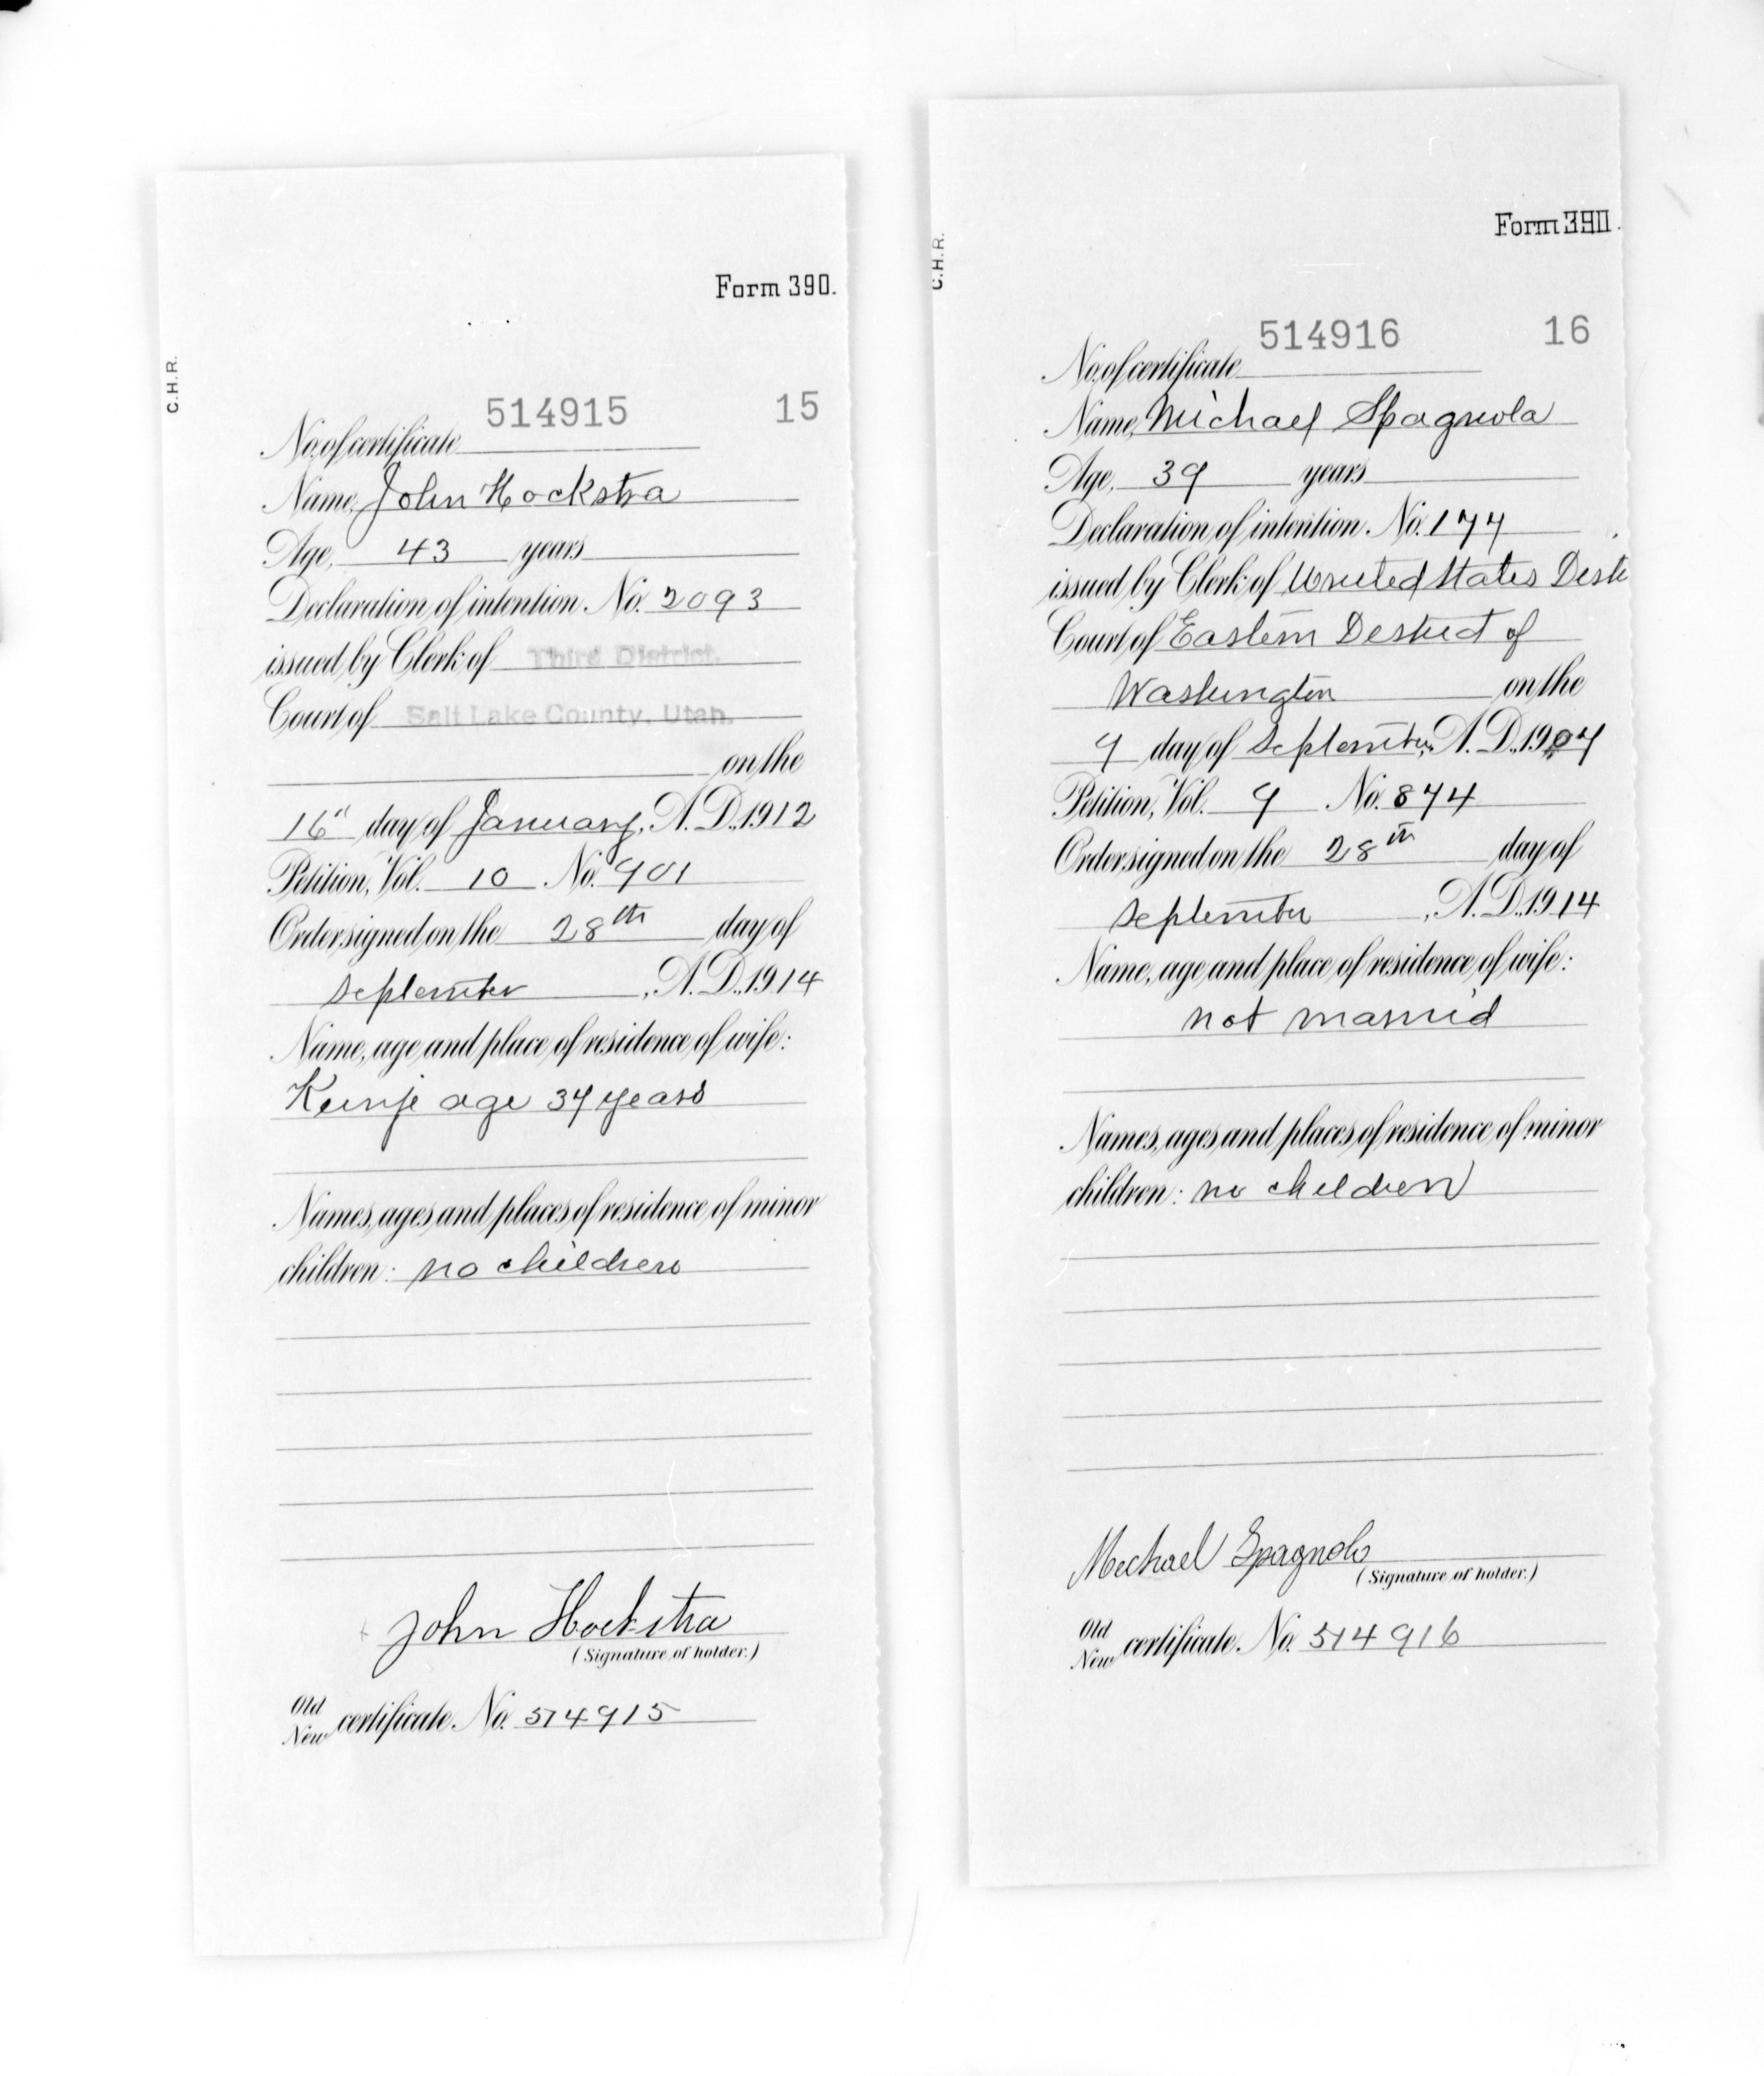 Form 390.
C.H.R.
514915 15
No. of certificate
Name, John Hockstra
Age, 43 years
Declaration of intention. No. 2093
issued by Clerk of Third District.
Court of Salt Lake County, Utah.
on the
16" day of January, A. D., 1912
Petition, Vol. 10 No. 901
Order signed on the 28th day of
September, A. D., 1914
Name, age and place of residence of wife:
age 37 years
Names, ages and places of residence of minor
children: no children
John Hoekstra
(Signature of holder.)
Old
New certificate No. 514915
Form 390.
C.H.R.
514916 16
No. of certificate
Name, Michael Spagnola
Age, 39 years
Declaration of intention. No. 177
issued by Clerk of United States Distr
Court of Eastern District of
Washington on the
day of September, A. D., 1907
Petition, Vol. No. 874
Order signed on the 28th day of
September, A. D., 1914
Name, age and place of residence of wife:
not married
Names, ages and places of residence of minor
children: no children
Michael Spagnolo
(Signature of holder.)
Old
New certificate No. 514916